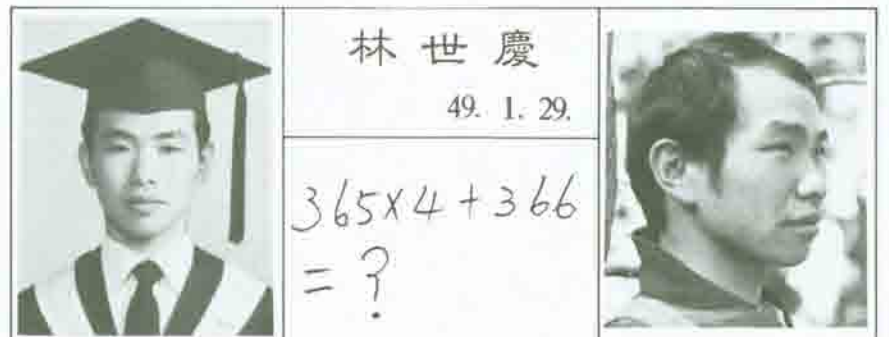 林世慶
49. 1. 29.
365×4+366
=?